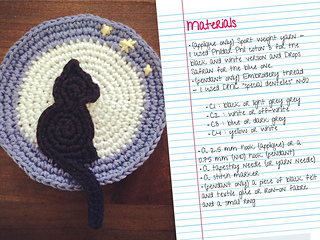 Materials
- (applique only) Sport weight yarn -
I used Phildar Phil coton 3 for the
black and white version and Drops
Safran for the blue one.
- (pendant only) Embroidery thread
- I used DMC "Special dentelles" n80
- C1 : black or light grey grey
- C2 : white or off-white
- C3 : blue or dark grey
- C4 : yellow or white
- A 2.5 mm hook (applique) or a
0.75 mm hook (pendant)
- A tapestry needle (or yarn needle)
- A stitch marker
- (pendant only) a piece of black felt
and textile glue or iron-on fabric
and a small ring